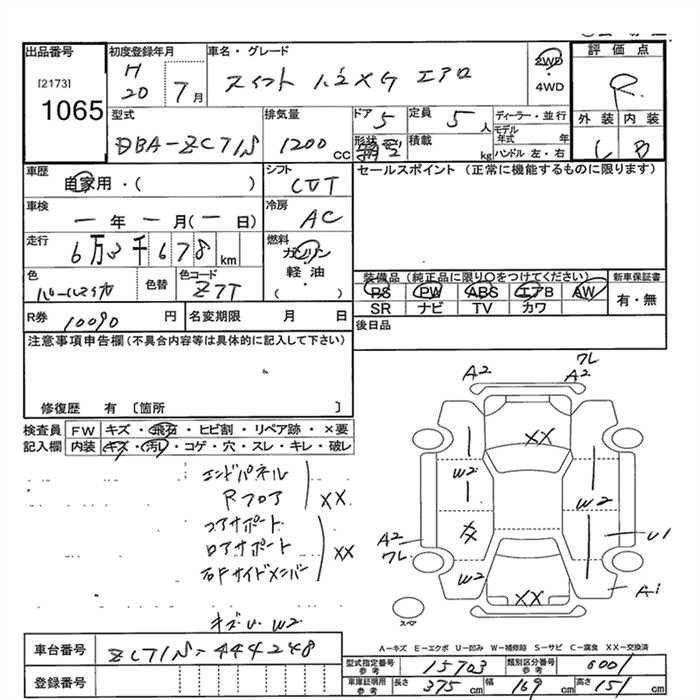 出品番号
[2173]
1065
初度登録年月
H 20 7月
車名・グレード
スイフト 1.2XG エアロ
2WD
4WD
評価点
R
外装 内装
C B
型式
DBA-ZC71S
排気量
1200 CC
ドア 5
形状
定員 5 人
積載 kg
ディーラー・並行
モデル年式 年
ハンドル 左・右
車歴
自家用・( )
シフト
CVT
車検
ー年ー月(ー日)
冷房
AC
走行
6万3千678 km
燃料
ガソリン・軽油・( )
色
色替
色コード
Z7T
R券 10090 円
名変期限 月 日
セールスポイント (正常に機能するものに限ります)
装備品(純正品に限り○をつけてください)
PS PW ABS エアB AW
SR ナビ TV カワ
新車保証書
有・無
後日品
注意事項申告欄(不具合内容等は具体的に記入して下さい)
修復歴 有 〔箇所 〕
検査員記入欄
FW キズ・飛石・ヒビ割・リペア跡・×要
内装 キズ・汚れ・コゲ・穴・スレ・キレ・破レ
エンドパネル
Rフロア
XX
コアサポート
ロアサポート
右Fサイドメンバー
XX
キズ U W2
A2
ワレ
A2
XX
W2
W2
A2
ワレ
U1
W2
A1
XX
スペア
A-キズ E-エクボ U-凹み W-補修跡 S-サビ C-腐食 XX-交換済
車台番号
ZC71S-444248
登録番号
型式指定番号 参考 15703
類別区分番号 参考 0001
車庫証明用 参考 長さ 375 cm 幅 169 cm 高さ 151 cm